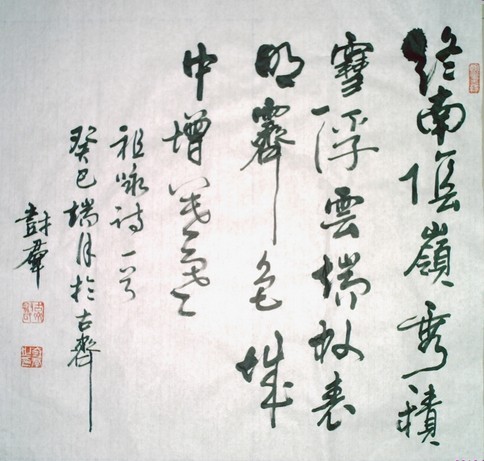 終南陰嶺秀積
雪浮雲端林表
明霽色城
中增暮寒
祖詠詩一首
癸巳端月於古齊
羣